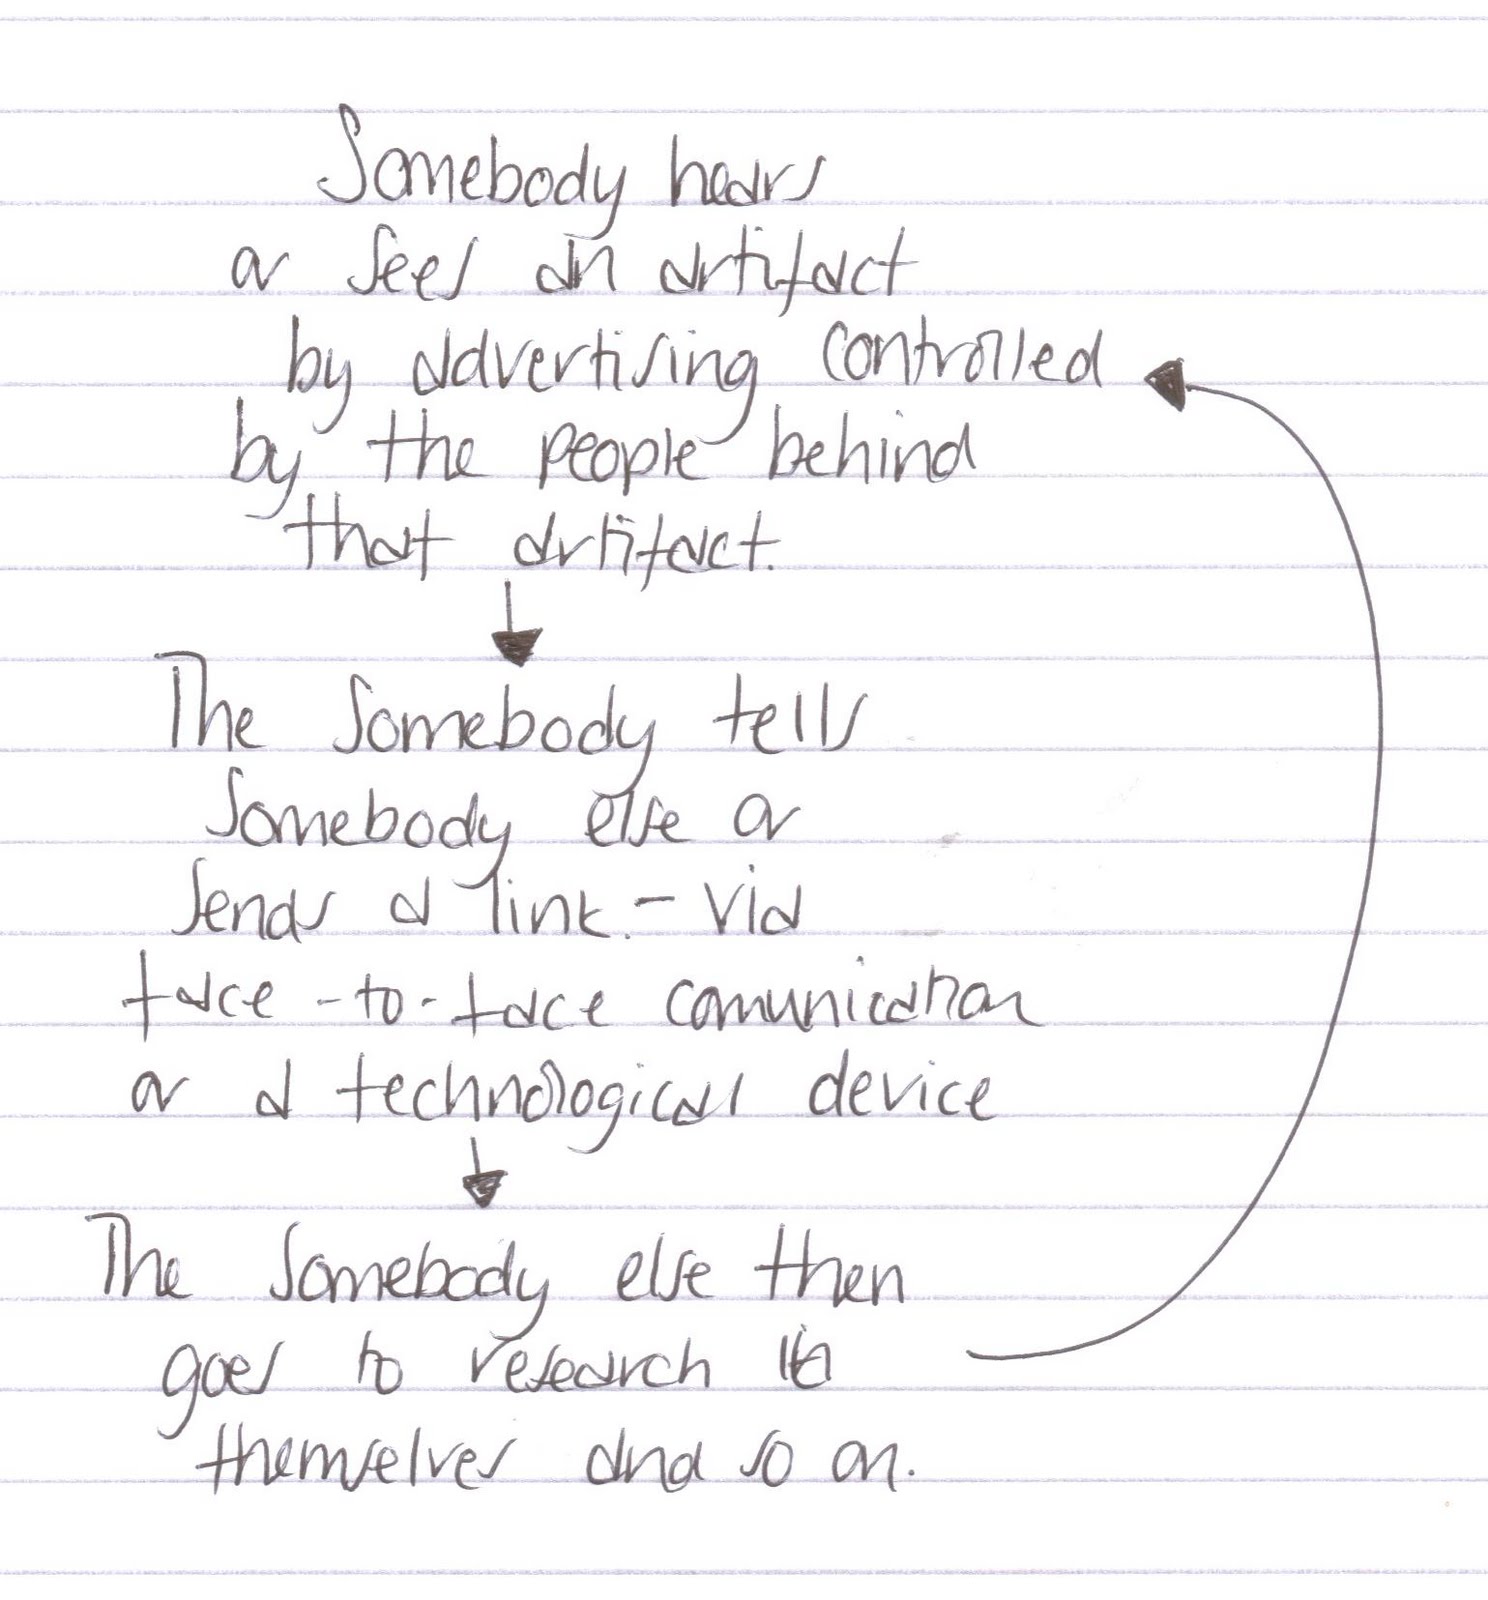 Somebody hears
or sees an artifact
by advertising controlled
by the people behind
that artifact.
The somebody tells
somebody else or
sends a link - via
face-to-face comunication
or a technological device
The somebody else then
goes to research
themselves and so on.